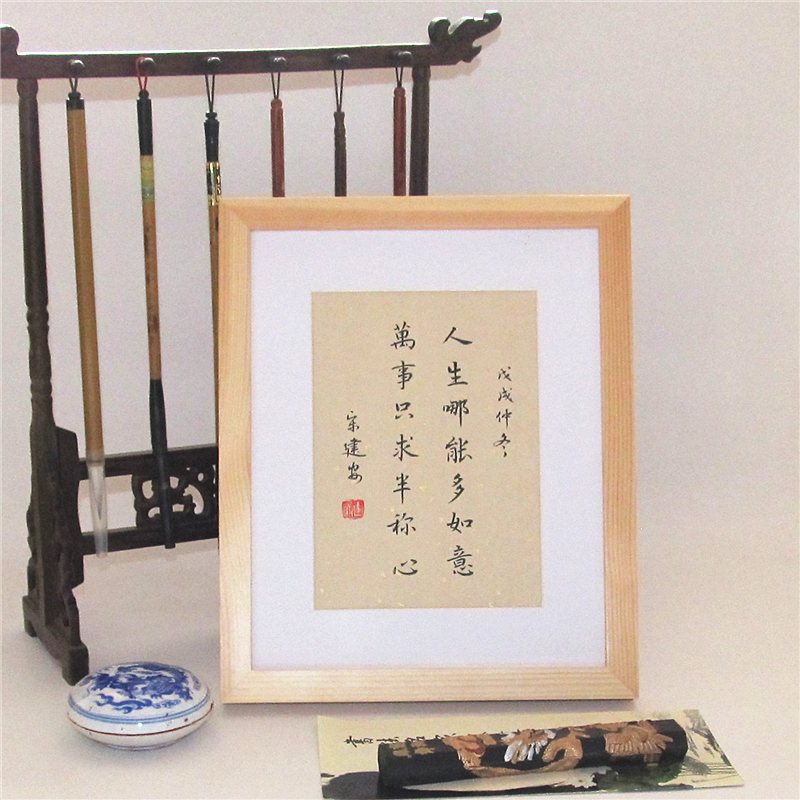 戊戌仲冬
人生哪能多如意
萬事只求半称心
宋建安